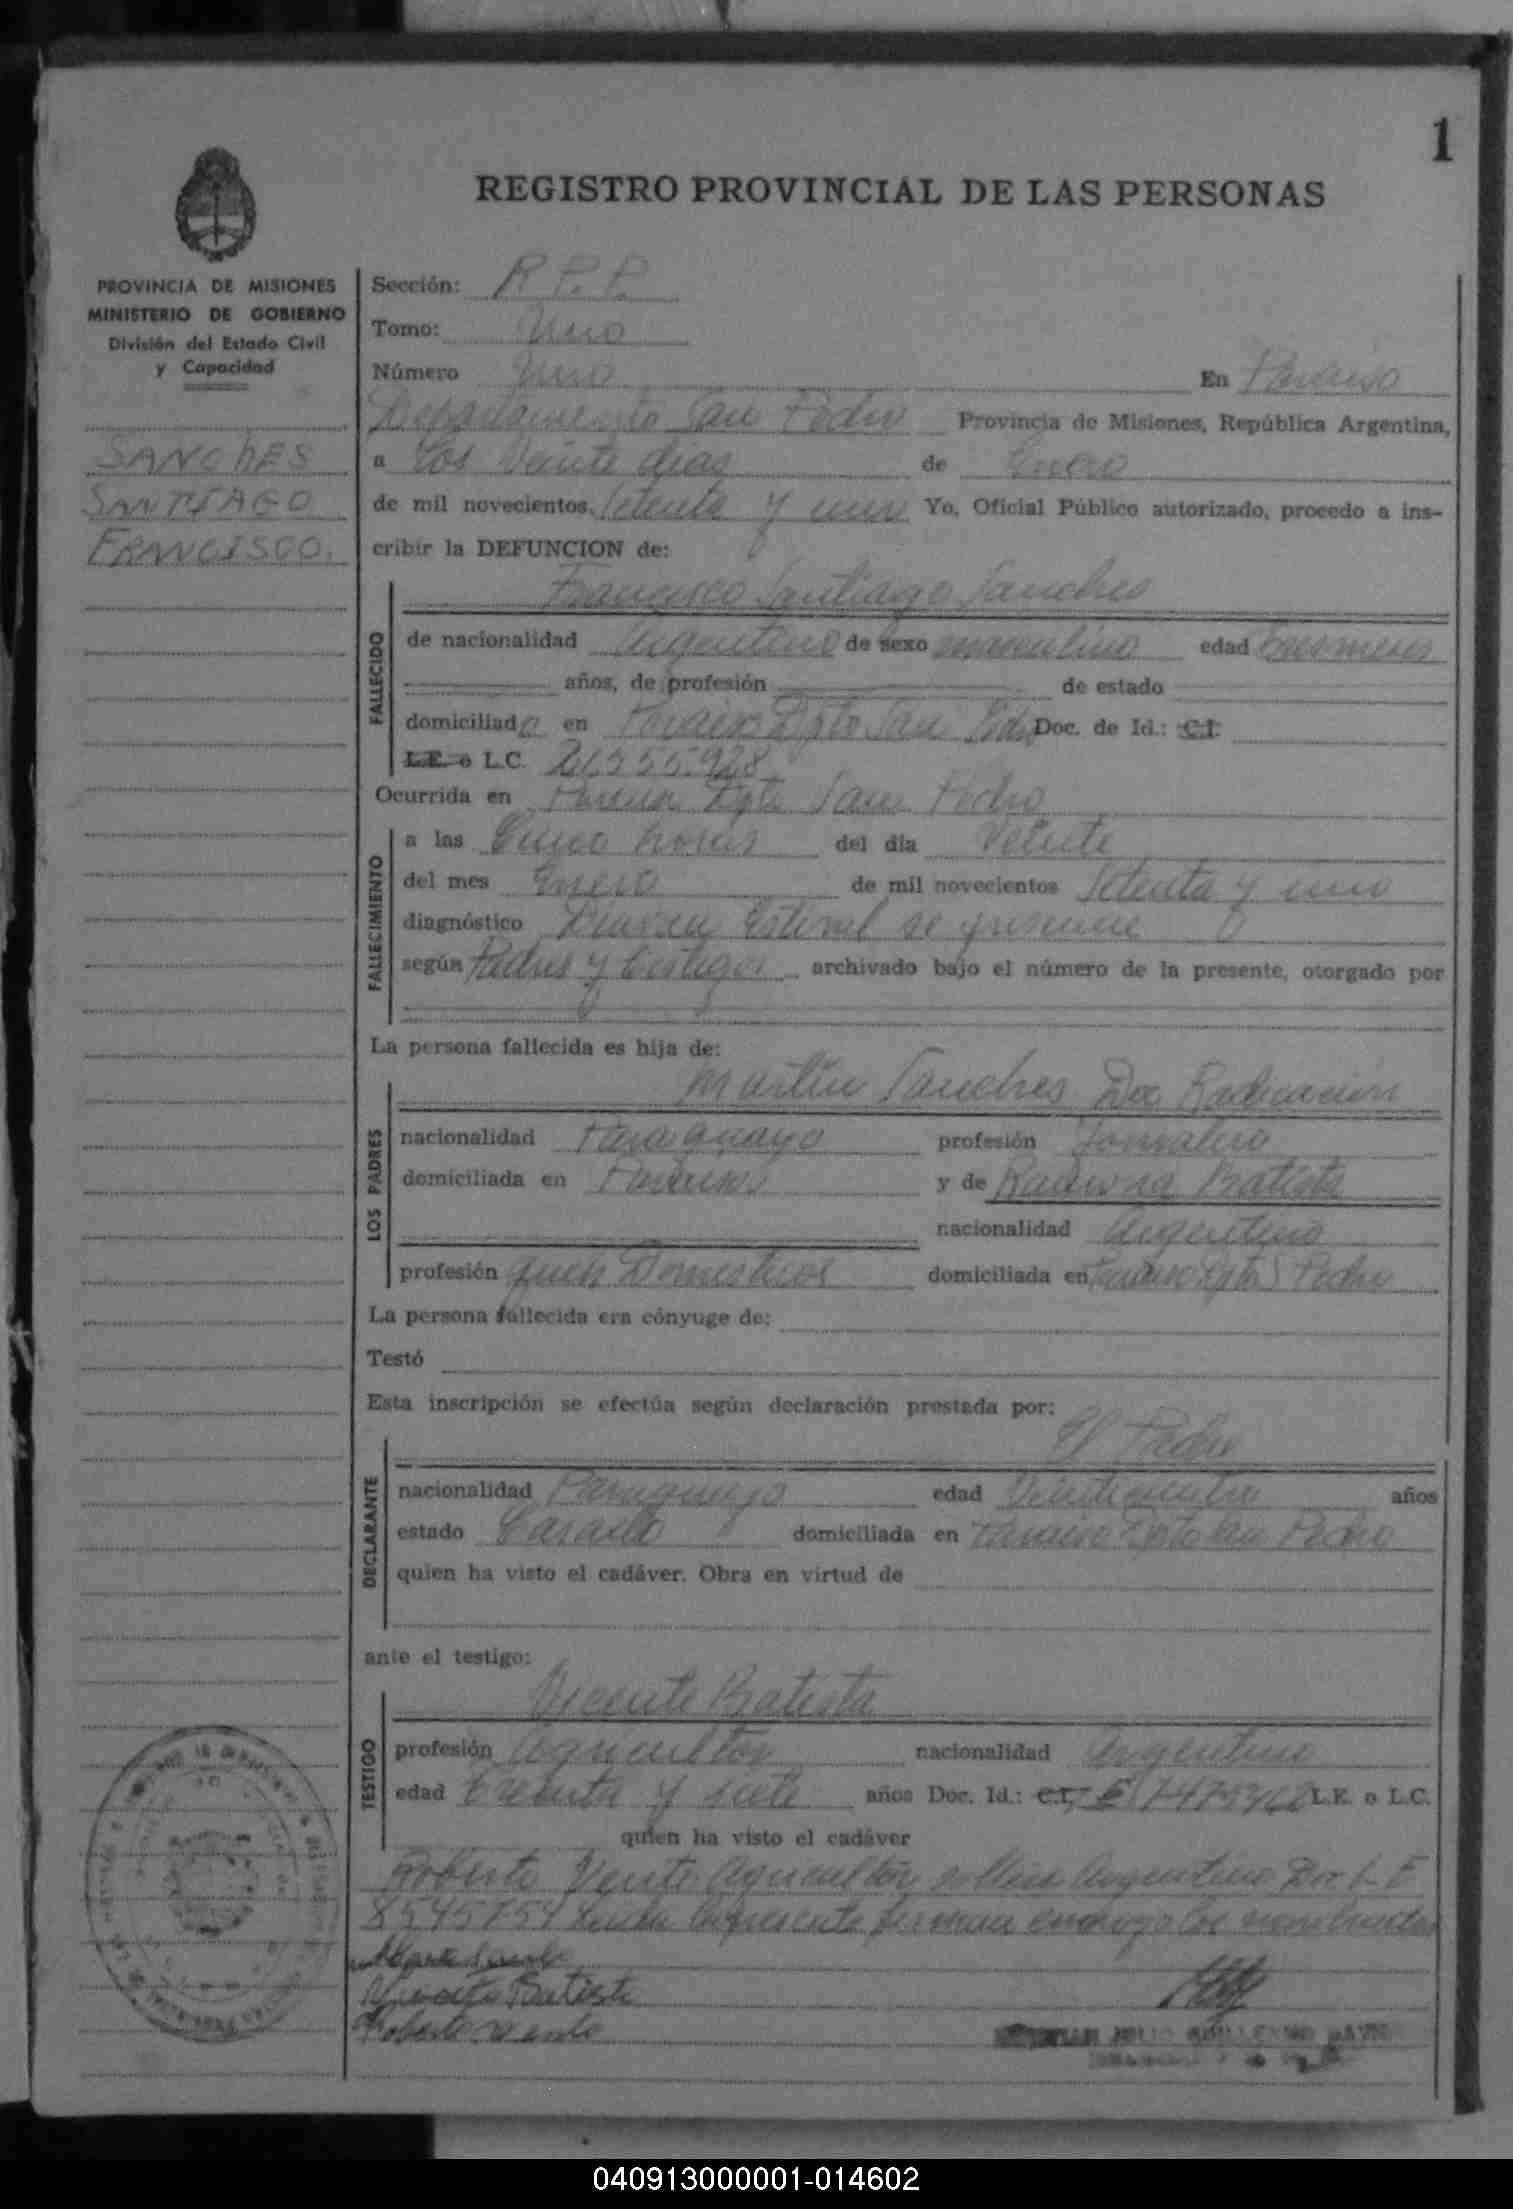 1
REGISTRO PROVINCIAL DE LAS PERSONAS
PROVINCIA DE MISIONES
MINISTERIO DE GOBIERNO
División del Estado Civil
y Capacidad
SANCHES
SANTIAGO
FRANCISCO.
Sección: R.P.P.
Tomo: Uno
Número Uno En Paraiso
Departamento San Pedro Provincia de Misiones, República Argentina,
a los Veinte dias de Enero
de mil novecientos Setenta y uno Yo, Oficial Público autorizado, procedo a ins-
cribir la DEFUNCION de:
Francisco Santiago Sanches
FALLECIDO
de nacionalidad Argentino de sexo masculino edad tres meses
años, de profesión de estado
domiciliado en Paraiso Dpto San Pedro Doc. de Id.: C.I.
L.E. o L.C. 21.355.928
Ocurrida en Paraiso Dpto San Pedro
FALLECIMIENTO
a las Cinco horas del día Veinte
del mes Enero de mil novecientos Setenta y uno
diagnóstico Diarrea Estival se presume
según Padres y testigos archivado bajo el número de la presente, otorgado por
La persona fallecida es hija de:
Martin Sanches Doc Radicación
LOS PADRES
nacionalidad Paraguayo profesión Jornalero
domiciliada en Paraiso y de Ramona Batista
nacionalidad Argentina
profesión queh Domesticos domiciliada en Paraiso Dpto S Pedro
La persona fallecida era cónyuge de:
Testó
Esta inscripción se efectúa según declaración prestada por:
El Padre
DECLARANTE
nacionalidad Paraguayo edad años
estado Casado domiciliada en Paraiso Dpto San Pedro
quien ha visto el cadáver. Obra en virtud de
ante el testigo:
Vicente Batista
TESTIGO
profesión Agricultor nacionalidad Argentino
edad treinta y siete años Doc. Id.: C.I. L.E. o L.C.
quien ha visto el cadáver
Roberto Vento Agricultor soltero Argentino Doc L E
8545754 Leida la presente firman conmigo los nombrados
Vicente Batista
Roberto Vento
JULIO GUILLERMO
040913000001-014602